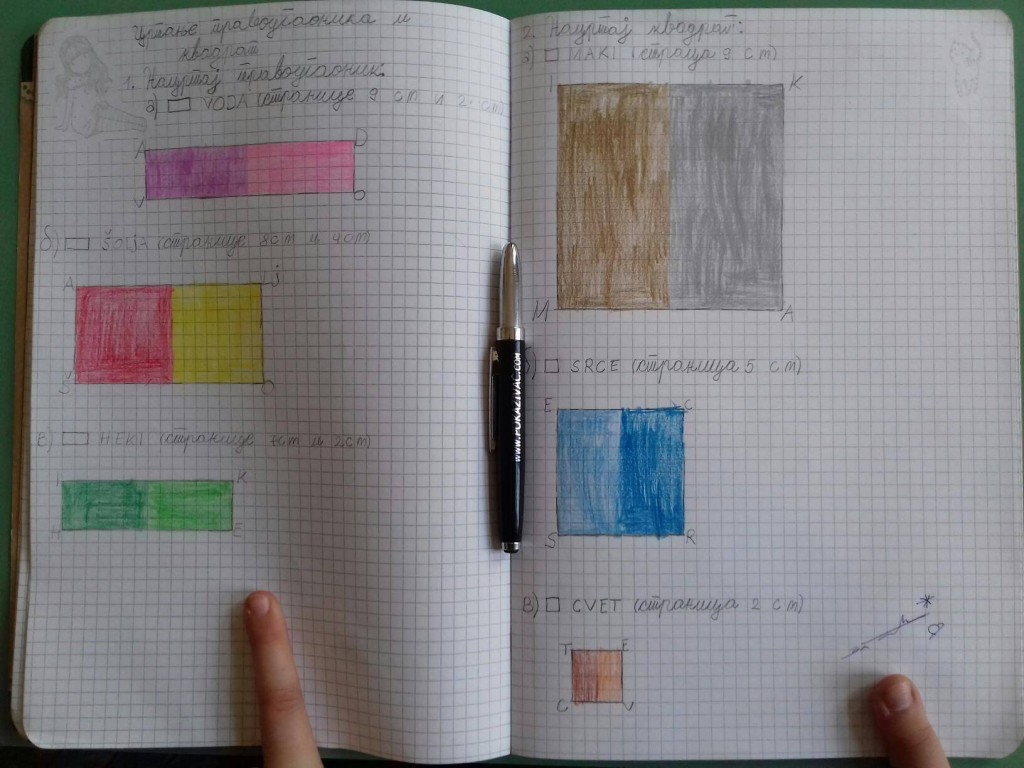 Цртање правоугаоника и
квадрат
1. Нацртај правоугаоник:
а) VODA (странице 9 cm и 2 cm)
A D
V O
б) ŠOLJA (странице 8cm и 4cm)
A J
Š O
в) HEKI (странице 7cm и 2cm)
I K
H E
2. Нацртај квадрат:
а) MAKI (страница 9 cm)
I K
M A
б) SRCE (страница 5 cm)
E C
S R
в) CVET (страница 2 cm)
T E
C V
www.POKAZIVAC.COM